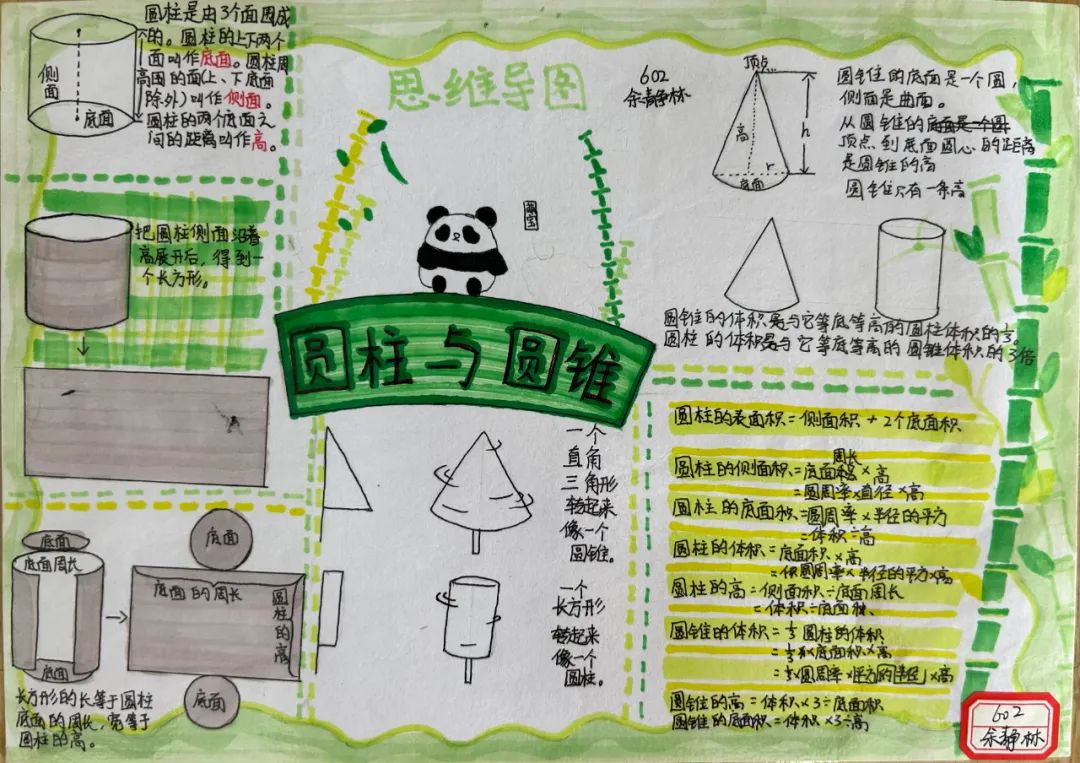 思维导图
602
余静林
圆柱与圆锥
侧面
底面
圆柱是由3个面围成
的。圆柱的上下两个
面叫作底面。圆柱周
高围的面(上、下底面
除外)叫作侧面。
圆柱的两个底面之
间的距离叫作高。
把圆柱侧面沿着
高展开后,得到一
个长方形。
底面
底面周长
底面
底面
底面的周长
圆柱的高
底面
长方形的长等于圆柱
底面的周长,宽等于
圆柱的高。
一个
直角
三角形
转起来
像一个
圆锥。
一个
长方形
转起来
像一个
圆柱。
顶点
高
h
r
底面
圆锥的底面是一个圆,
侧面是曲面。
从圆锥的底面是一个圆
顶点到底面圆心的距离
是圆锥的高
圆锥只有一条高
圆锥的体积是与它等底等高的圆柱体积的⅓。
圆柱的体积是与它等底等高的圆锥体积的3倍
圆柱的表面积=侧面积+2个底面积
圆柱的侧面积=底面周长×高
=圆周率×直径×高
圆柱的底面积=圆周率×半径的平方
=体积÷高
圆柱的体积=底面积×高
=圆周率×半径的平方×高
圆柱的高=侧面积÷底面周长
=体积÷底面积
圆锥的体积=⅓圆柱的体积
=⅓×底面积×高
=⅓×圆周率×平方的半径×高
圆锥的高=体积×3÷底面积
圆锥的底面积=体积×3÷高
602
余静林